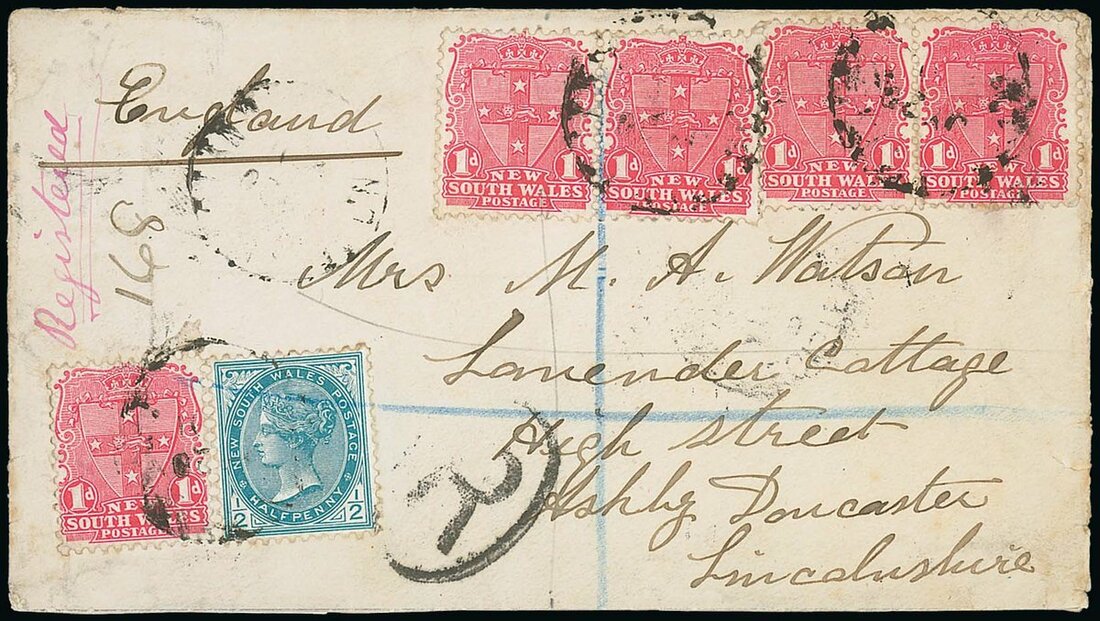 England
Registered
168
1d 1d
NEW
SOUTH WALES
POSTAGE
1d 1d
NEW
SOUTH WALES
POSTAGE
1d 1d
NEW
SOUTH WALES
POSTAGE
1d 1d
NEW
SOUTH WALES
POSTAGE
Mrs M. A. Watson
Lavender Cottage
High street
Ashby Doncaster
Lincolnshire
1d 1d
NEW
SOUTH WALES
POSTAGE
NEW SOUTH WALES POSTAGE
HALFPENNY
1/2 1/2
R